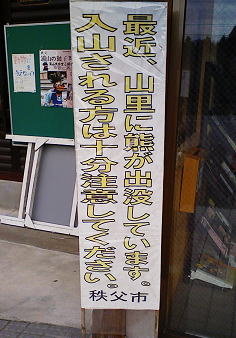 最近、山里に熊が出没しています。
入山される方は十分注意してください。
秩父市